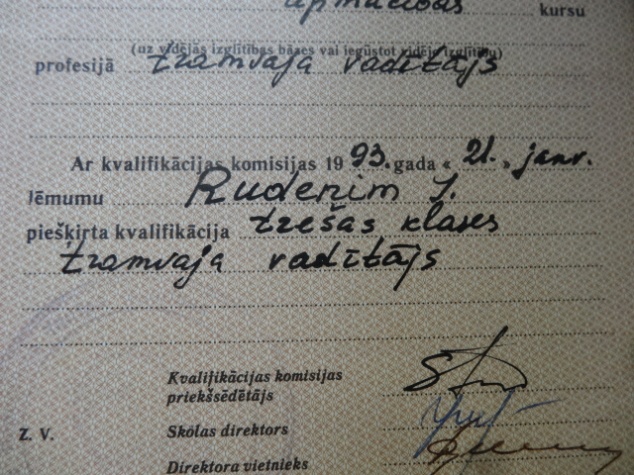 apmācības kursu
(uz vidējās izglītības bāzes vai iegūstot vidējo izglītību)
profesijā tramvaja vadītājs
Ar kvalifikācijas komisijas 1993. gada « 21. » janv.
lēmumu Rudeņim J.
piešķirta kvalifikācija trešās klases
tramvaja vadītājs
Kvalifikācijas komisijas
priekšsēdētājs
Z. V. Skolas direktors
Direktora vietnieks